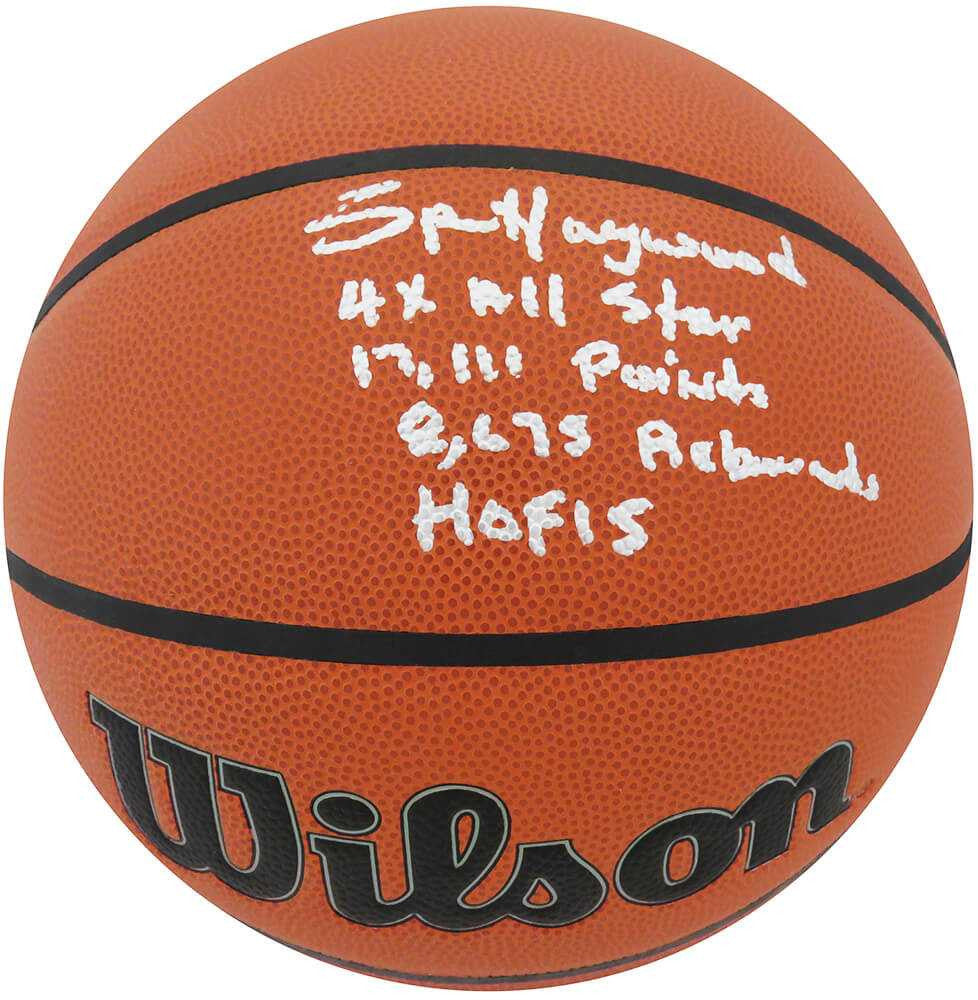 Sp Haywood
4x All Star
17,111 Points
8,675 Rebounds
HOF15
Wilson